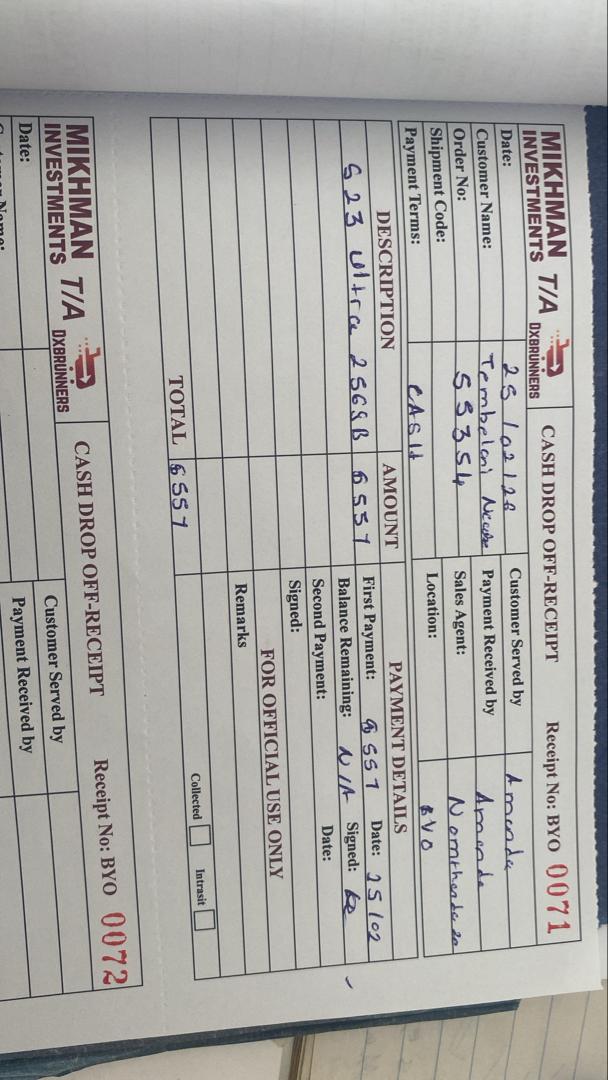 MIKHMAN T/A
INVESTMENTS DXBRUNNERS
CASH DROP OFF-RECEIPT
Receipt No: BYO 0071
Date: 25/02/26 Customer Served by Amanda
Customer Name: Tembelani Payment Received by Amanda
Order No: 55354 Sales Agent:
Shipment Code: Location: BYO
Payment Terms: CASH
DESCRIPTION AMOUNT PAYMENT DETAILS
S23 Ultra 256GB $557 First Payment: $557 Date: 25/02
Balance Remaining: N/A Signed:
Second Payment: Date:
Signed:
FOR OFFICIAL USE ONLY
Remarks
TOTAL $557 Collected Intrasit
MIKHMAN T/A
INVESTMENTS DXBRUNNERS
CASH DROP OFF-RECEIPT
Receipt No: BYO 0072
Date: Customer Served by
Payment Received by